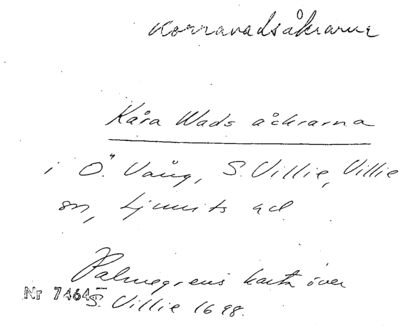 Korravadsåkrarne
Kåra Wads åckrarna
i Ö. Vång, S. Villie, Villie
sn, Ljunits hd
Palmegrens karta över
Nr 7464 S. Villie 1698.